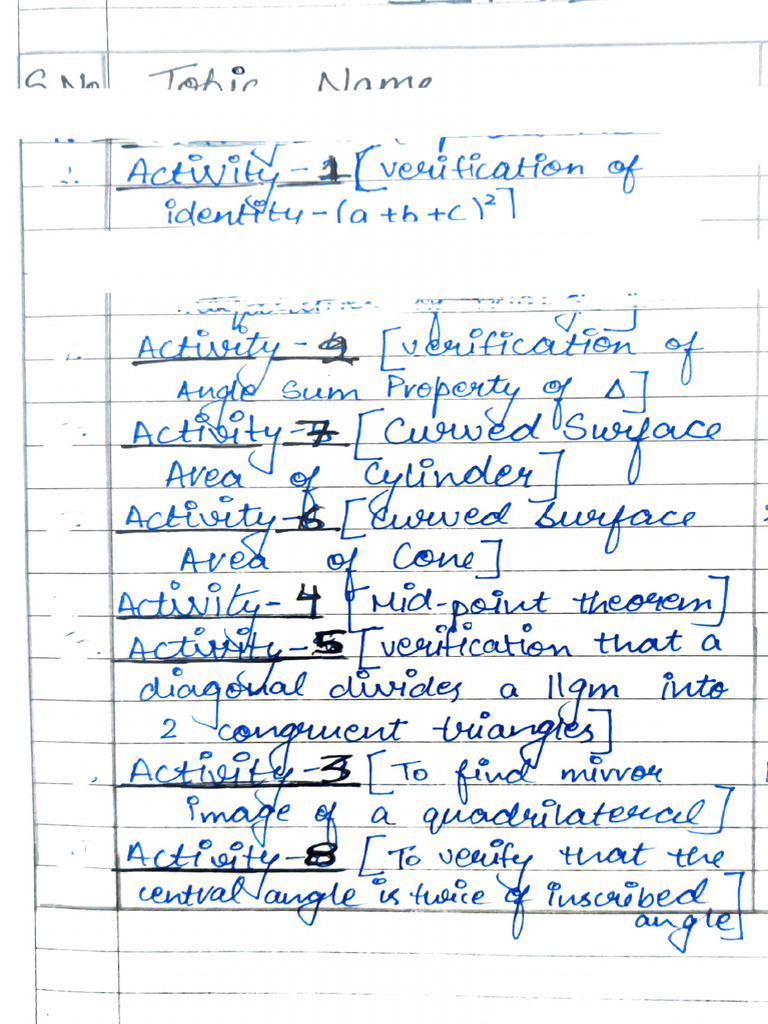 S.No Topic Name
Activity-1 [verification of
identity-(a+b+c)²]
Activity- [verification of
Angle Sum Property of Δ]
Activity-7 [Curved Surface
Area of Cylinder]
Activity-6 [Curved Surface
Area of Cone]
Activity-4 [Mid-point theorem]
Activity-5 [verification that a
diagonal divides a ||gm into
2 congruent triangles]
Activity-3 [To find mirror
image of a quadrilateral]
Activity-8 [To verify that the
central angle is twice of inscribed
angle]